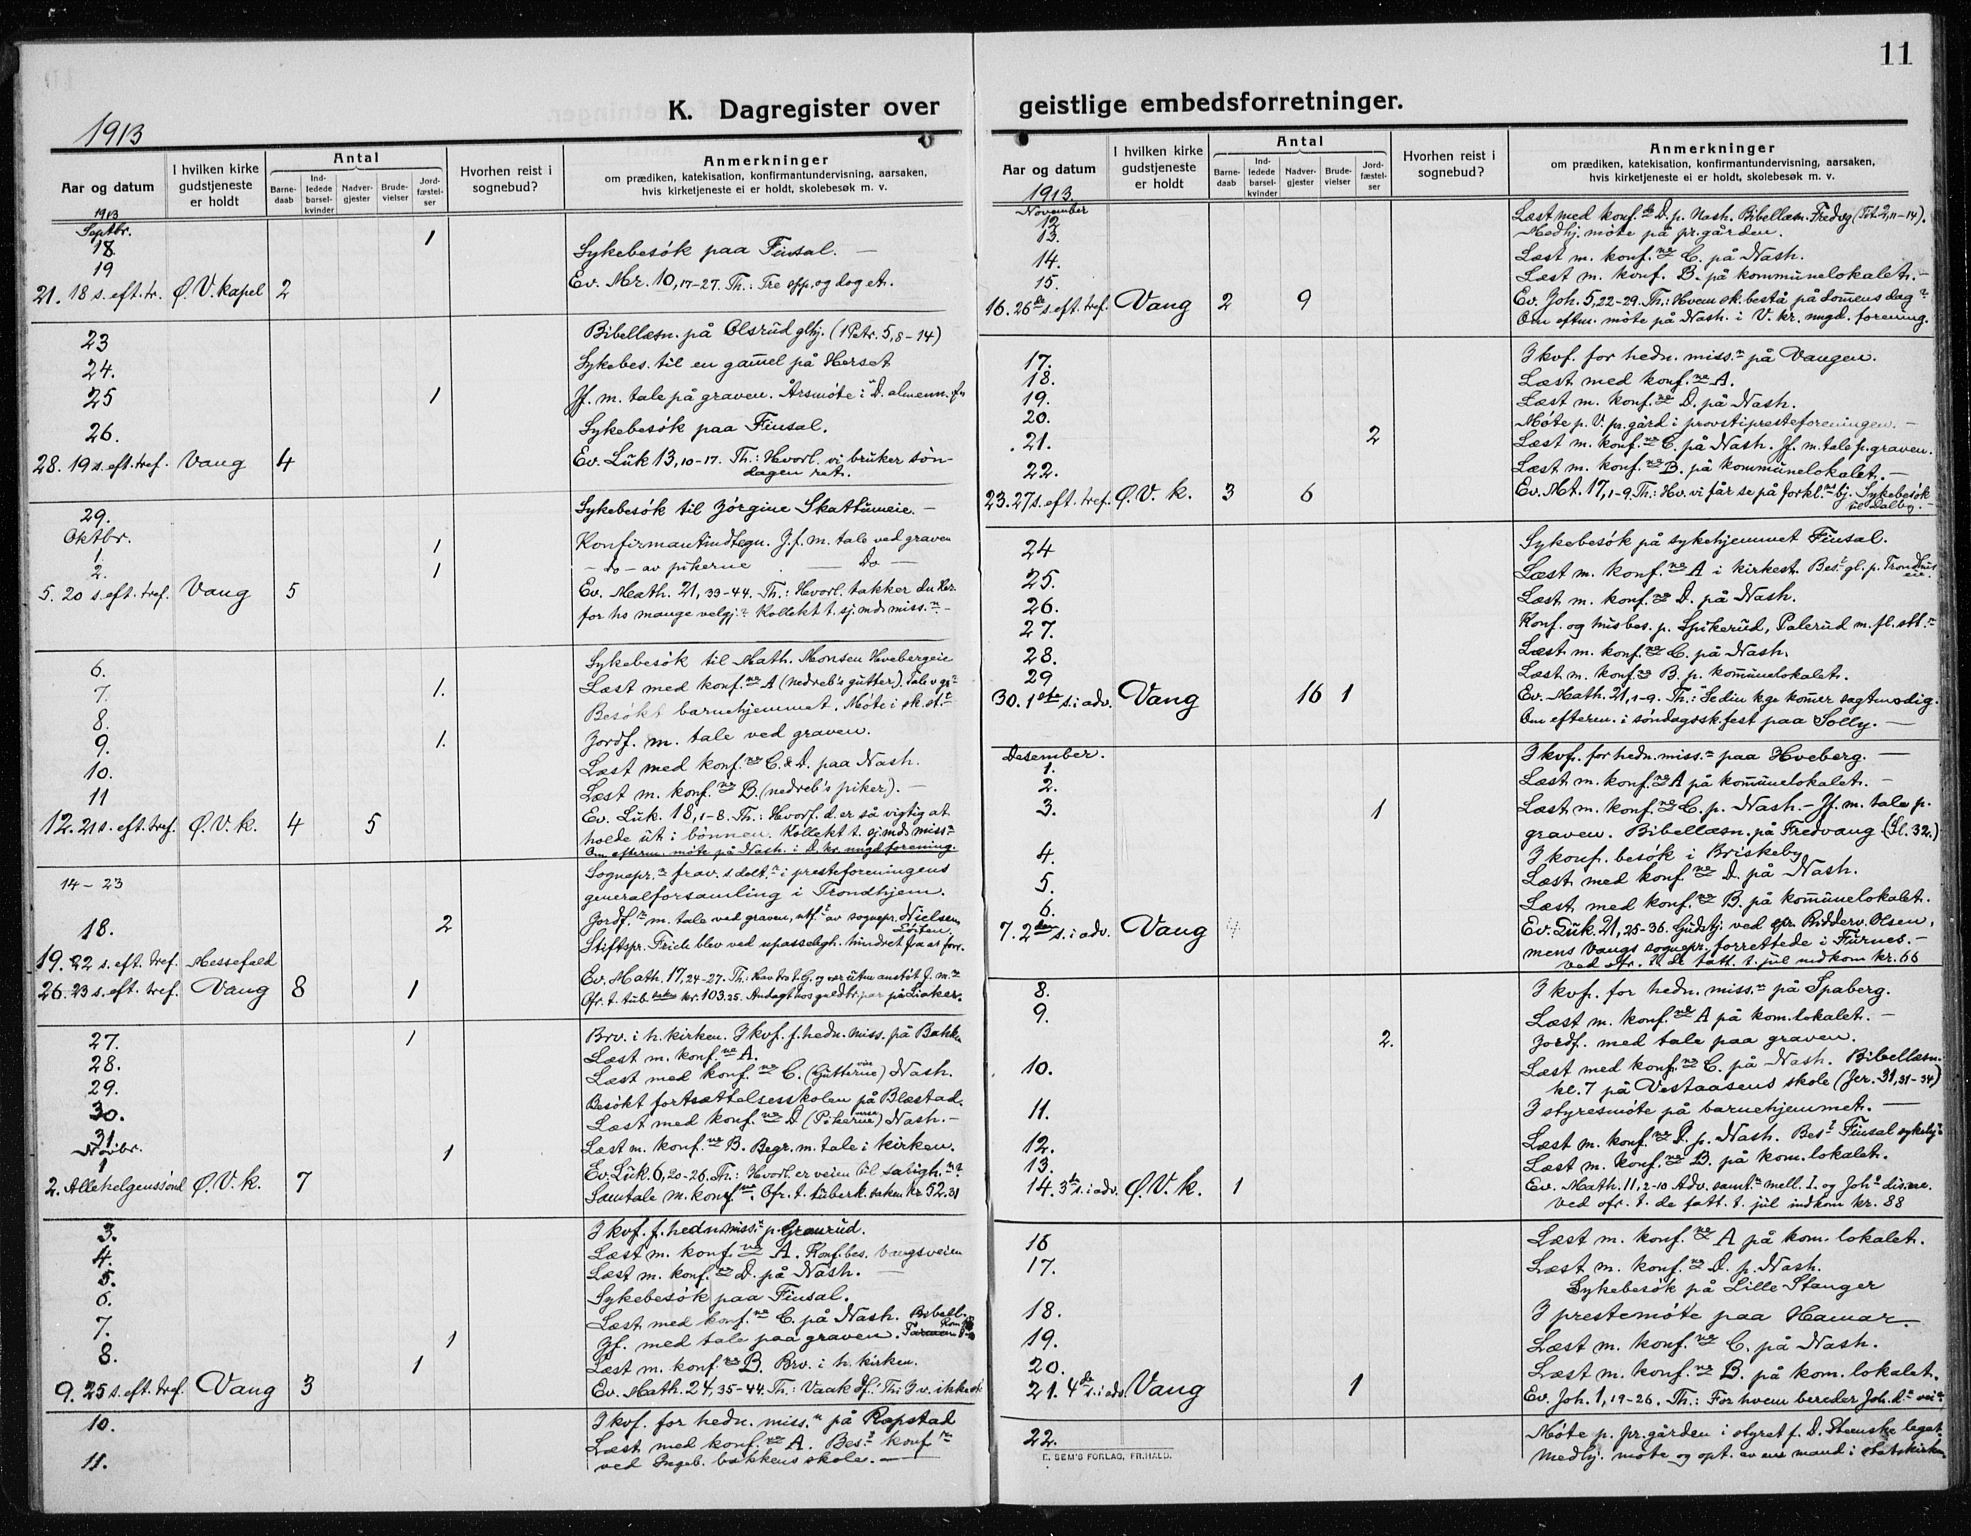 K. Dagregister over
1913
Aar og datum
I hvilken kirke gudstjeneste er holdt
Antal
Barne-daab
Ind-ledede barsel-kvinder
Nadver-gjester
Brude-vielser
Jord-fæstel-ser
Hvorhen reist i sognebud?
Anmerkninger
om prædiken, katekisation, konfirmantundervisning, aarsaken, hvis kirketjeneste ei er holdt, skolebesøk m. v.
1913
Septbr.
18 1
19 Sykebesök paa Finsal. —
21. 18 s. eft. tr. Ø. V. kapel 2 Ev. Mr. 10, 17-27. Th: Tre opp. og dog et.
23 Bibellæsn. på Olsrud (1 Petr. 5, 8-14)
24. Sykebes. til en gam̄el på Herset
25 1 Jf. m. tale på graven. Årsmöte i D. almenn.
26. Sykebesök paa Finsal.
28. 19 s. eft. tref. Vang 4 Ev. Luk 13, 10-17. Th: Hvorl. vi bruker søn-
dagen ret.
29. Sykebesök til Jörgine Skattumeie. —
Oktbr.
1. 1 Konfirmantindtegn. J. f. m. tale ved graven
2. 1 — do — av pikerne — Do —
5. 20 s. eft. tref. Vang 5 Ev. Math. 21, 33-44. Th: Hvorl. takker du Her.
for hs mange velgj.? Kollekt t. sj. mds miss.n
6. Sykebesök til Math. Monsen Hvebergeie
7. 1. Læst med konf.ne A (nedreb's gutter).
8. Besökt barnehjemmet. Möte i sk. st.
9. 1. Jordf. m. tale ved graven.
10. Læst med konf.ne C. & D. paa Nash.
11 Læst m. konf.ne B. (nedreb's piker). —
12. 21 s. eft. tref. Ø. V. k. 4 5 Ev. Luk. 18, 1-8. Th: Hvorf. d. er så vigtig at
holde ut i bönnen. Kollekt t. sj. mds miss.n
Om efterm. möte på Nash. i D. kr. ungd forening.
14 - 23 Sognepr. frav. s delt. i presteforeningens
generalforsamling i Trondhjem.
18. 2 Jordf. m. tale ved graven, utf. av sognepr. Nielsen
Löiten.
19. 22 s. eft. tref. Messefald Stiftspr. blev ved upasseligh. hindret fra at forr.
26. 23 s. eft. tref. Vang 8 1 Ev. Math. 17, 24-27. Th:
Ofr. t. tub. kr. 103.25. Andagt hos guldbr. par på Liaker.
27. 1 Brv. i h. kirken. I kvf. f. hedn. miss. på Bakke
28. Læst m. konf.ne A.
29. Læst med konf.ne C. (Gutterne) Nash.
30. Besökt fortsættelsesskolen på Blæstad.
31. Læst med konf.ne D (Pikerne) Nash. —
Novbr.
1 1 Læst m. konf.ne B. Begr. m. tale i kirken.
2. Allehelgenssönd Ø. V. k. 7 Ev. Luk. 6, 20-26. Th: Hvorl. er veien til saligh.
Samtale m. konf.ne. Ofr. t. tuberk. saken kr. 52.31
3. I kvf. f. hedn. miss. p. Granrud.
4. Læst m. konf.ne A. Konf. bes. Vangsveien
5. Læst m. konf.ne D. på Nash. —
6. Sykebesök paa Finsal.
7. Læst med konf.ne C. på Nash. Bibell.
8. 1 Jf. med tale paa graven.
1 Læst m. konf.ne B. Brv. i h. kirken.
9. 25 s. eft. tref. Vang 3 Ev. Math. 24, 35-44. Th: Vaak
10. I kvf. for hedn. miss. på Ropstad
11. Læst med konf.ne A. Bes. konf
ved Ingeb. bakkens skole. —
geistlige embedsforretninger.
11
Aar og datum
I hvilken kirke gudstjeneste er holdt
Antal
Barne-daab
Ind-ledede barsel-kvinder
Nadver-gjester
Brude-vielser
Jord-fæstel-ser
Hvorhen reist i sognebud?
Anmerkninger
om prædiken, katekisation, konfirmantundervisning, aarsaken, hvis kirketjeneste ei er holdt, skolebesøk m. v.
1913.
November
12 Læst med konf. D. p. Nash. Bibellæsn. Fredvg (Tit. 2, 11-14).
13. Medhj. möte på pr.gården.
14. Læst m. konf.ne C. på Nash.
15. Læst m. konf. B. på kommunelokalet. —
16. 26de s. eft. tref. Vang 2 9 Ev. Joh. 5, 22-29. Th: Hvem sk. bestå på dom̄ens dag?
Om eftm. möte på Nash. i V. kr. ungd. forening.
17. I kvf. for hedn. miss.n på Vangen.
18. Læst med konf.ne A.
19. Læst m. konf.ne D. på Nash.
20. Möte p. V. pr. gård i provstipresteforeningen. —
21. 2 Læst m. konf.ne C. på Nash. Jf. m. tale p. graven.
22. Læst m. konf.ne B. på kommunelokalet. —
23. 27 s. eft. tref. Ø. V. k. 3 6 Ev. Mt. 17, 1-9. Th: Hv. vi får se på forkl.ns bj. Sykebesök
til Dalby. —
24 Sykebesök på sykehjemmet Finsal.
25. Læst m. konf.ne A i kirkest. Bes. gl. p.
26. Læst m. konf.ne D. på Nash.
27. Konf. og husbes. p. Spikerud, Palerud m. fl. st.
28. Læst m. konf.ne C. på Nash.
29 Læst m. konf.ne B. p. kom̄unelokalet.
30. 1ste s. i adv. Vang 16 1 Ev. Math. 21, 1-9. Th: Se din kge kom̄er sagtmodig.
Om efterm. i söndagssk. fest paa Solly. —
Desember.
1. I kvf. for hedn. miss.n paa Hveberg. —
2. Læst m. konf.ne A på kom̄unelokalet. —
3. 1 Læst m. konf.ne C. p. Nash. — Jf. m. tale p.
graven. Bibellæsn. på Fredvang (Sl. 32.)
4. I konf. besök i Briskeby
5. Læst med konf.ne D. på Nash.
6. Læst med konf.ne B. på kom̄unelokalet.
7. 2den s. i adv. Vang 4 Ev. Luk. 21, 25-36. Gudstj. ved spr. Ridderv. Olsen,
mens Vangs sognepr. forrettede i Furnes. —
ved ofr. t. de fatt. t. jul indkom kr. 66
8. I kvf. for hedn. miss.n på Spaberg.
9. Læst m. konf.ne A på kom. lokalet. —
2. Jordf. med tale paa graven.
10. Læst med konf.ne C. på Nash. Bibellæsn.
kl. 7 på Vestaasens skole (Jer. 31, 31-34)
11. I styresmöte på barnehjemmet. —
12. Læst m. konf.ne D. p. Nash. Bes. Finsal sykehj.
13. Læst m. konf.ne B. på kom. lokalet.
14. 3de s. i adv. Ø. V. k. 1 Ev. Math. 11, 2-10 Adv. samt. mell. I. og Joh. disne.
ved ofr. t. de fatt. t. jul indkom kr. 88
16 Læst m. konf.ne A på kom. lokalet.
17. Læst m. konf.ne D. p. Nash.
Sykebesök på Lille Stanger
18. I prestemöte paa Hamar. —
19. Læst m. konf.ne C. på Nash.
20. Læst m. konf.ne B. på kom. lokalet.
21. 4de s. i adv. Vang 1 Ev. Joh. 1, 19-26. Th: For hvem bereder Joh. d.
22. Möte p. pr. gården i styret f. D. Steenske legat
Medhj. möte og opt. av en mand i statskirken
E. SEM'S FORLAG, FR.HALD.